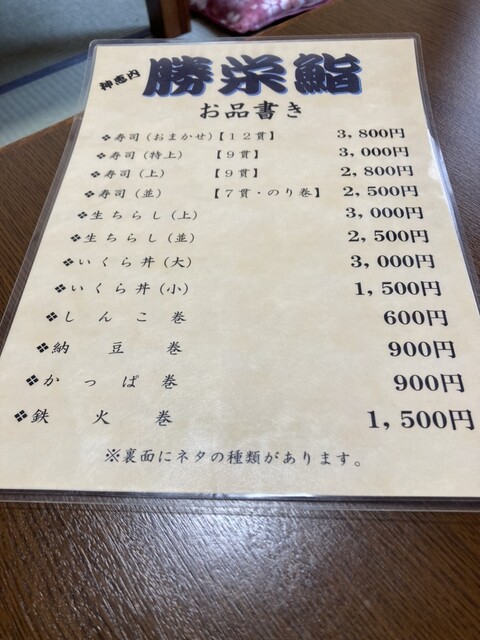 神恵内 勝栄鮨
お品書き
❖寿司(おまかせ)【12貫】 3,800円
❖寿司(特上) 【9貫】 3,000円
❖寿司(上) 【9貫】 2,800円
❖寿司(並) 【7貫・のり巻】 2,500円
❖生ちらし(上) 3,000円
❖生ちらし(並) 2,500円
❖いくら丼(大) 3,000円
❖いくら丼(小) 1,500円
❖しんこ巻 600円
❖納豆巻 900円
❖かっぱ巻 900円
❖鉄火巻 1,500円
※裏面にネタの種類があります。